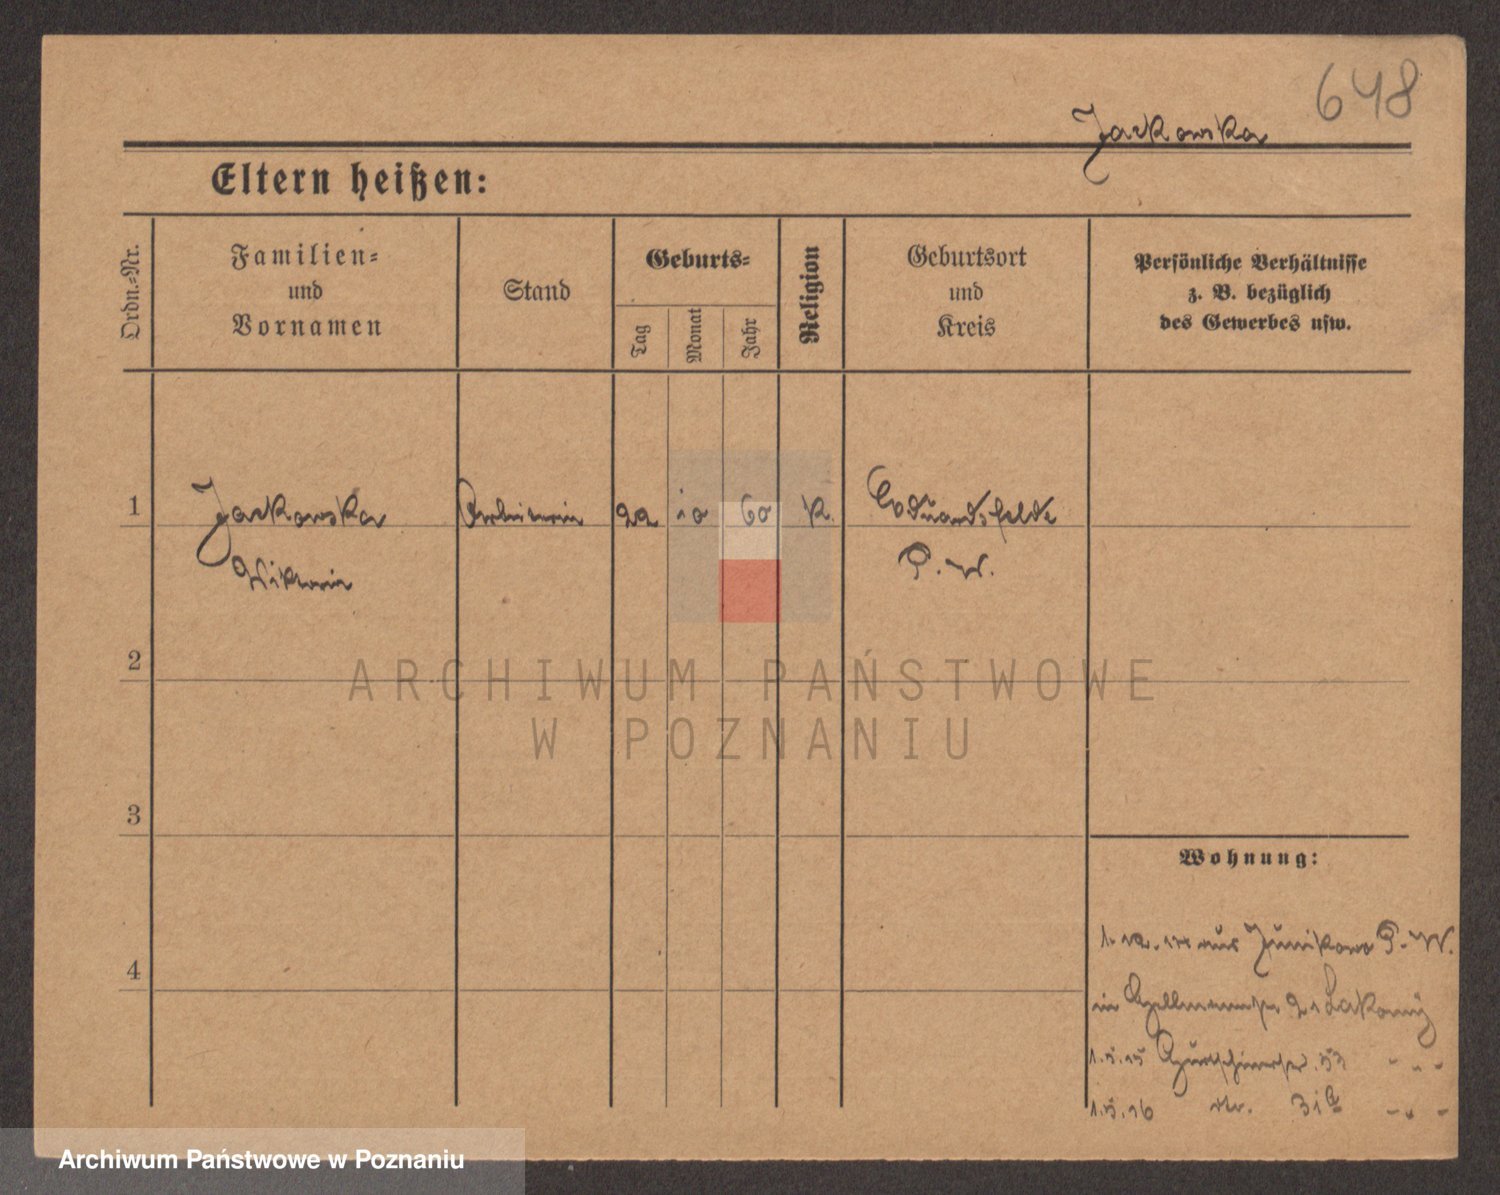 648
Jackowska
Eltern heißen:
Ordn.-Nr.
Familien-
und
Vornamen
Stand
Geburts-
Tag
Monat
Jahr
Religion
Geburtsort
und
Kreis
Persönliche Verhältnisse
z. B. bezüglich
des Gewerbes usw.
1
Jackowska
Arbeiterin
22
10
60
K.
Eduardsfelde
Wiktoria
P. W.
2
ARCHIWUM PAŃSTWOWE
W POZNANIU
3
Wohnung:
4
aus Junikowo P. W.
in 21 Lakomy
1.5.15 53 " " "
1.5.16 Nr. 31
Archiwum Państwowe w Poznaniu